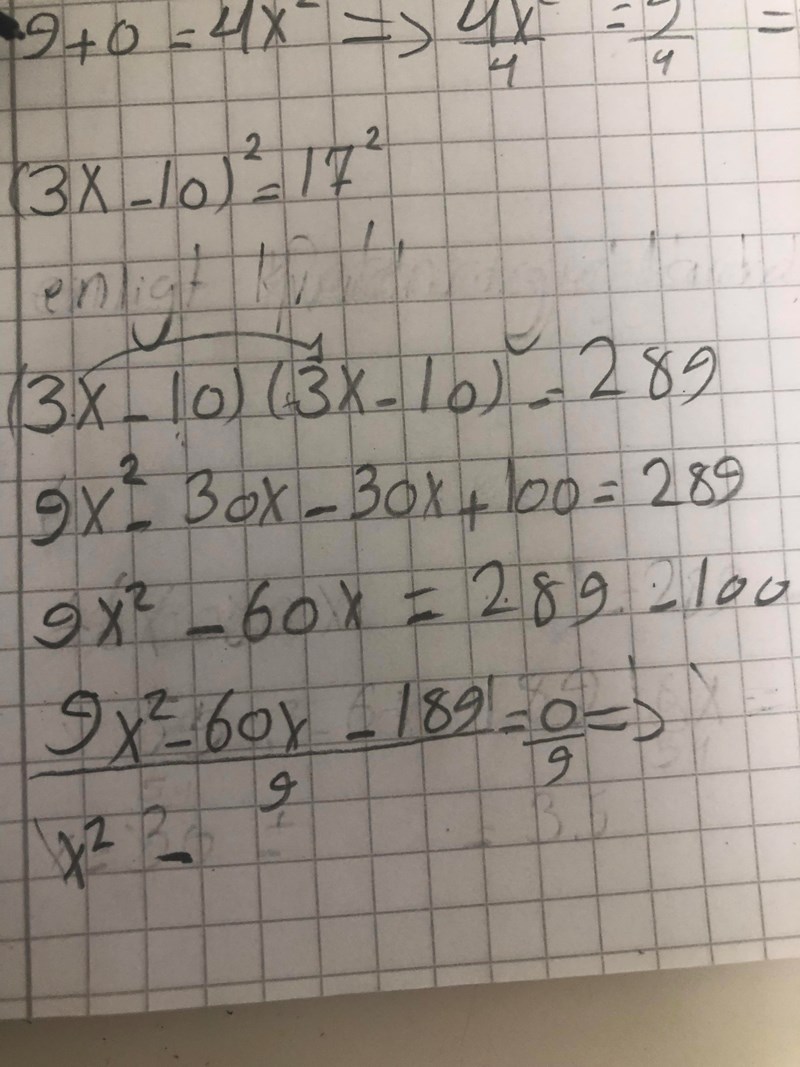 9+0 = 4x² => 4x/4 = 9/4 =
(3x-10)² = 17²
enligt
(3x-10)(3x-10) = 289
9x² - 30x - 30x + 100 = 289
9x² - 60x = 289 - 100
9x² - 60x - 189 / 9 = 0/9 =>
x² -